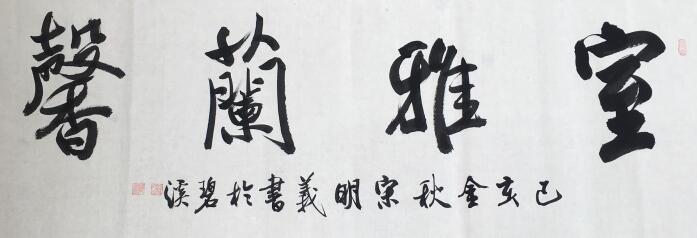 室雅蘭馨
己亥金秋宗明義書於碧溪